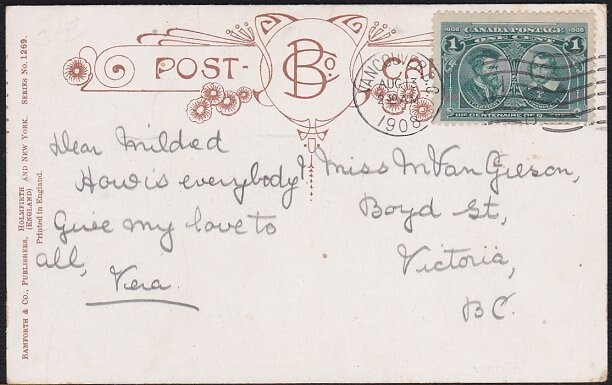 BAMFORTH & CO., PUBLISHERS, HOLMFIRTH (ENGLAND) AND NEW YORK. SERIES NO. 1269.
Printed in England.
POST-
B Co.
CA
VANCOUVER B.C.
AUG 13
1908
1608 1908
CANADA POSTAGE
1 ONE CENT 1
IIIe CENTENAIRE DE Q
Dear Mildred
How is everybody?
Give my love to
all,
Vera
Miss M Van Gieson,
Boyd St,
Victoria,
BC.